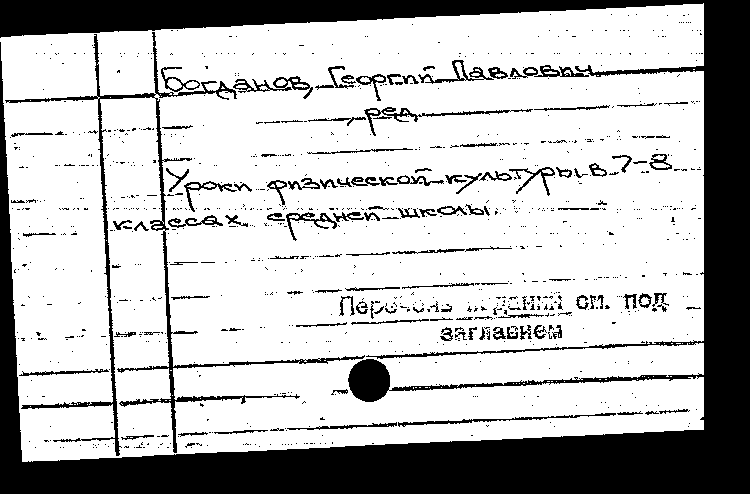 Богданов, Георгий Павлович,
ред.
Уроки физической культуры в 7-8
классах средней школы.
Перечень изданий см. под
заглавием